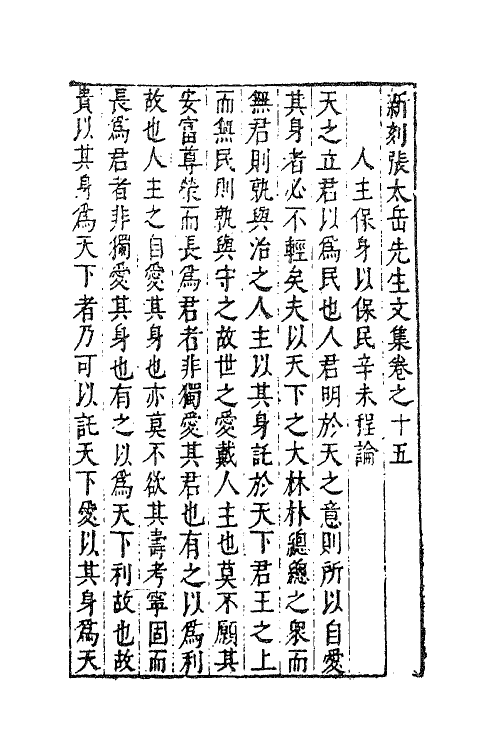 新刻張太岳先生文集卷之十五
人主保身以保民辛未程論
天之立君以為民也人君明於天之意則所以自愛
其身者必不輕矣夫以天下之大林林總總之眾而
無君則孰與治之人主以其身託於天下君王之上
而無民則孰與守之故世之愛戴人主也莫不願其
安富尊榮而長為君者非獨愛其君也有之以為利
故也人主之自愛其身也亦莫不欲其壽考寧固而
長為君者非獨愛其身也有之以為天下利故也故
貴以其身為天下者乃可以託天下愛以其身為天